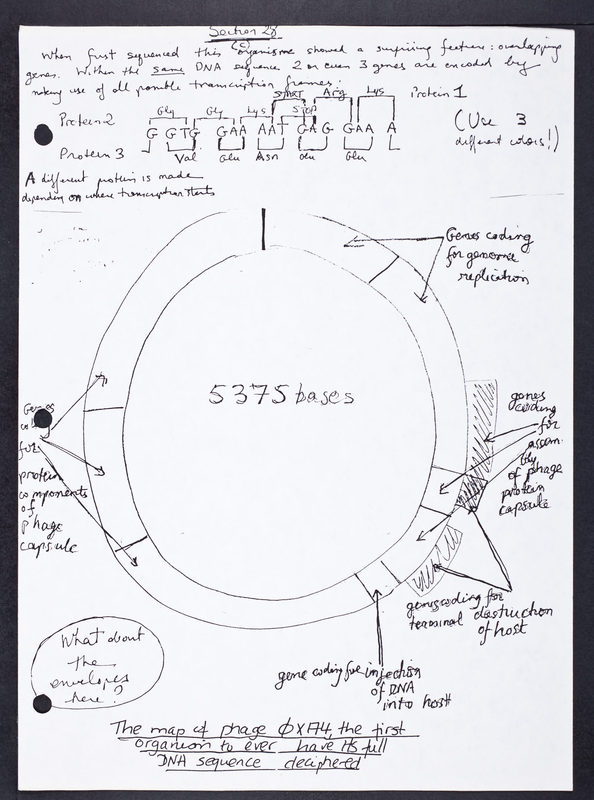 Section 28
When first sequenced this (c) organisme showed a surprising feature: overlapping
genes. Within the same DNA sequence 2 or even 3 genes are encoded by
making use of all possible transcription frames:
START Arg Lys Protein 1
Gly Gly Lys STOP
Protein 2 G G T G G A A A A T G A G G A A A (Use 3
different colors!)
Protein 3 Val Glu Asn Glu Glu
A different protein is made
depending on where transcription starts
Genes coding
for genome
replication
5375 bases
genes
coding
for
assem-
bly
of phage
protein
capsule
Genes
coding
for
protein
components
of
phage
capsule
genes coding for
terminal destruction
of host
gene coding for injection
of DNA
into host
What about
the
envelopes
here?
The map of phage ØX174, the first
organism to ever have its full
DNA sequence deciphered